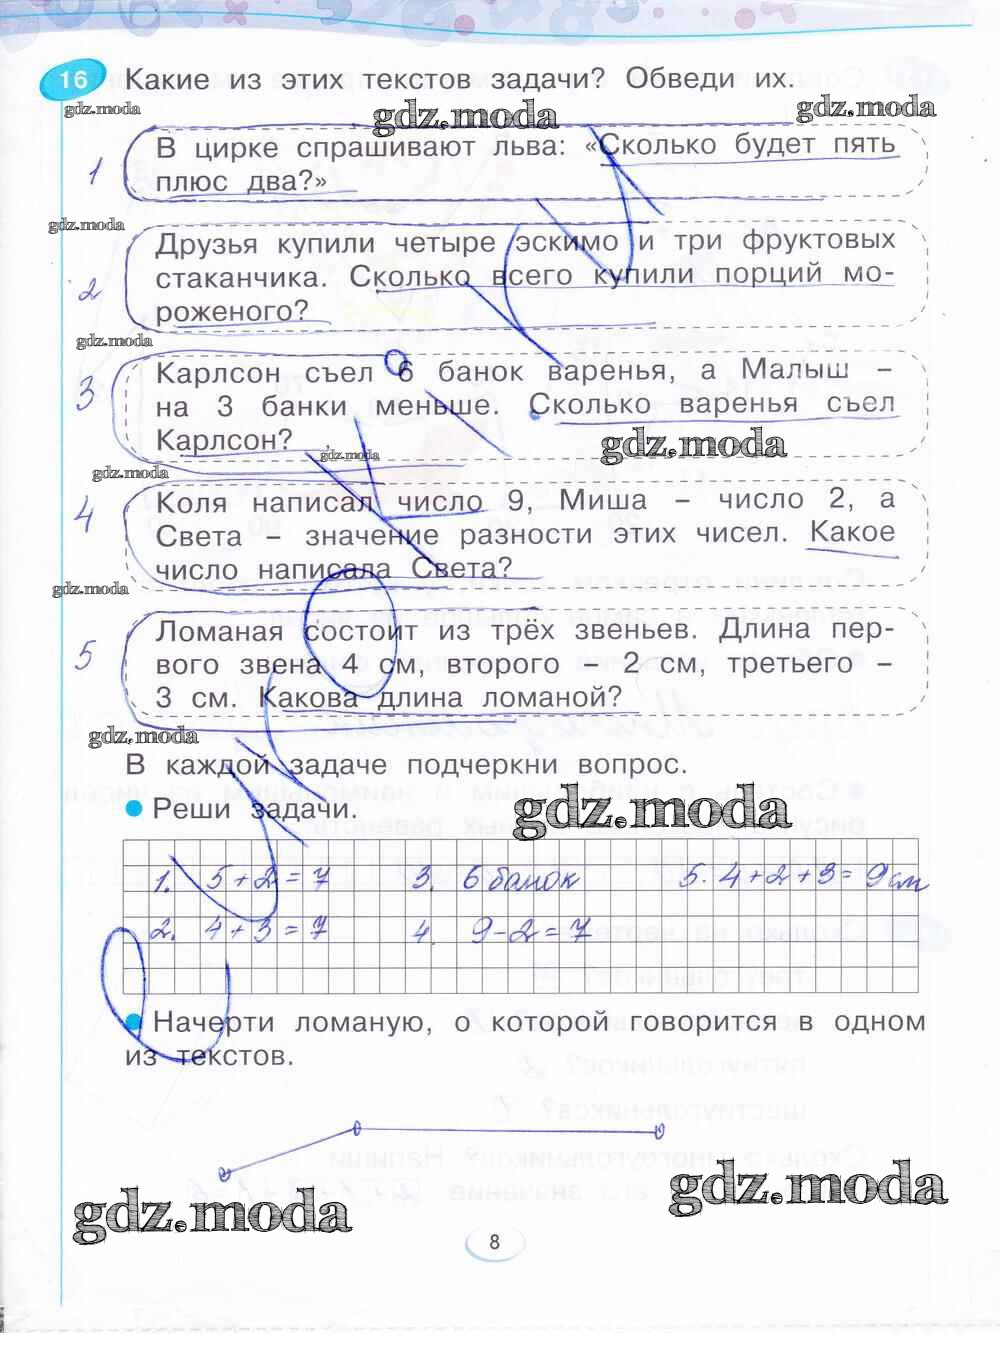 16 Какие из этих текстов задачи? Обведи их.
gdz.moda gdz.moda gdz.moda
1 В цирке спрашивают льва: «Сколько будет пять
плюс два?»
gdz.moda
Друзья купили четыре эскимо и три фруктовых
2 стаканчика. Сколько всего купили порций мо-
роженого?
gdz.moda
Карлсон съел 6 банок варенья, а Малыш –
3 на 3 банки меньше. Сколько варенья съел
Карлсон?
gdz.moda
gdz.moda
gdz.moda
4 Коля написал число 9, Миша – число 2, а
Света – значение разности этих чисел. Какое
число написала Света?
gdz.moda
Ломаная состоит из трёх звеньев. Длина пер-
5 вого звена 4 см, второго – 2 см, третьего –
3 см. Какова длина ломаной?
gdz.moda
В каждой задаче подчеркни вопрос.
• Реши задачи.
gdz.moda
1. 5+2=7 3. 6 банок 5. 4+2+3=9см
2. 4+3=7 4. 9-2=7
• Начерти ломаную, о которой говорится в одном
из текстов.
gdz.moda
gdz.moda
8